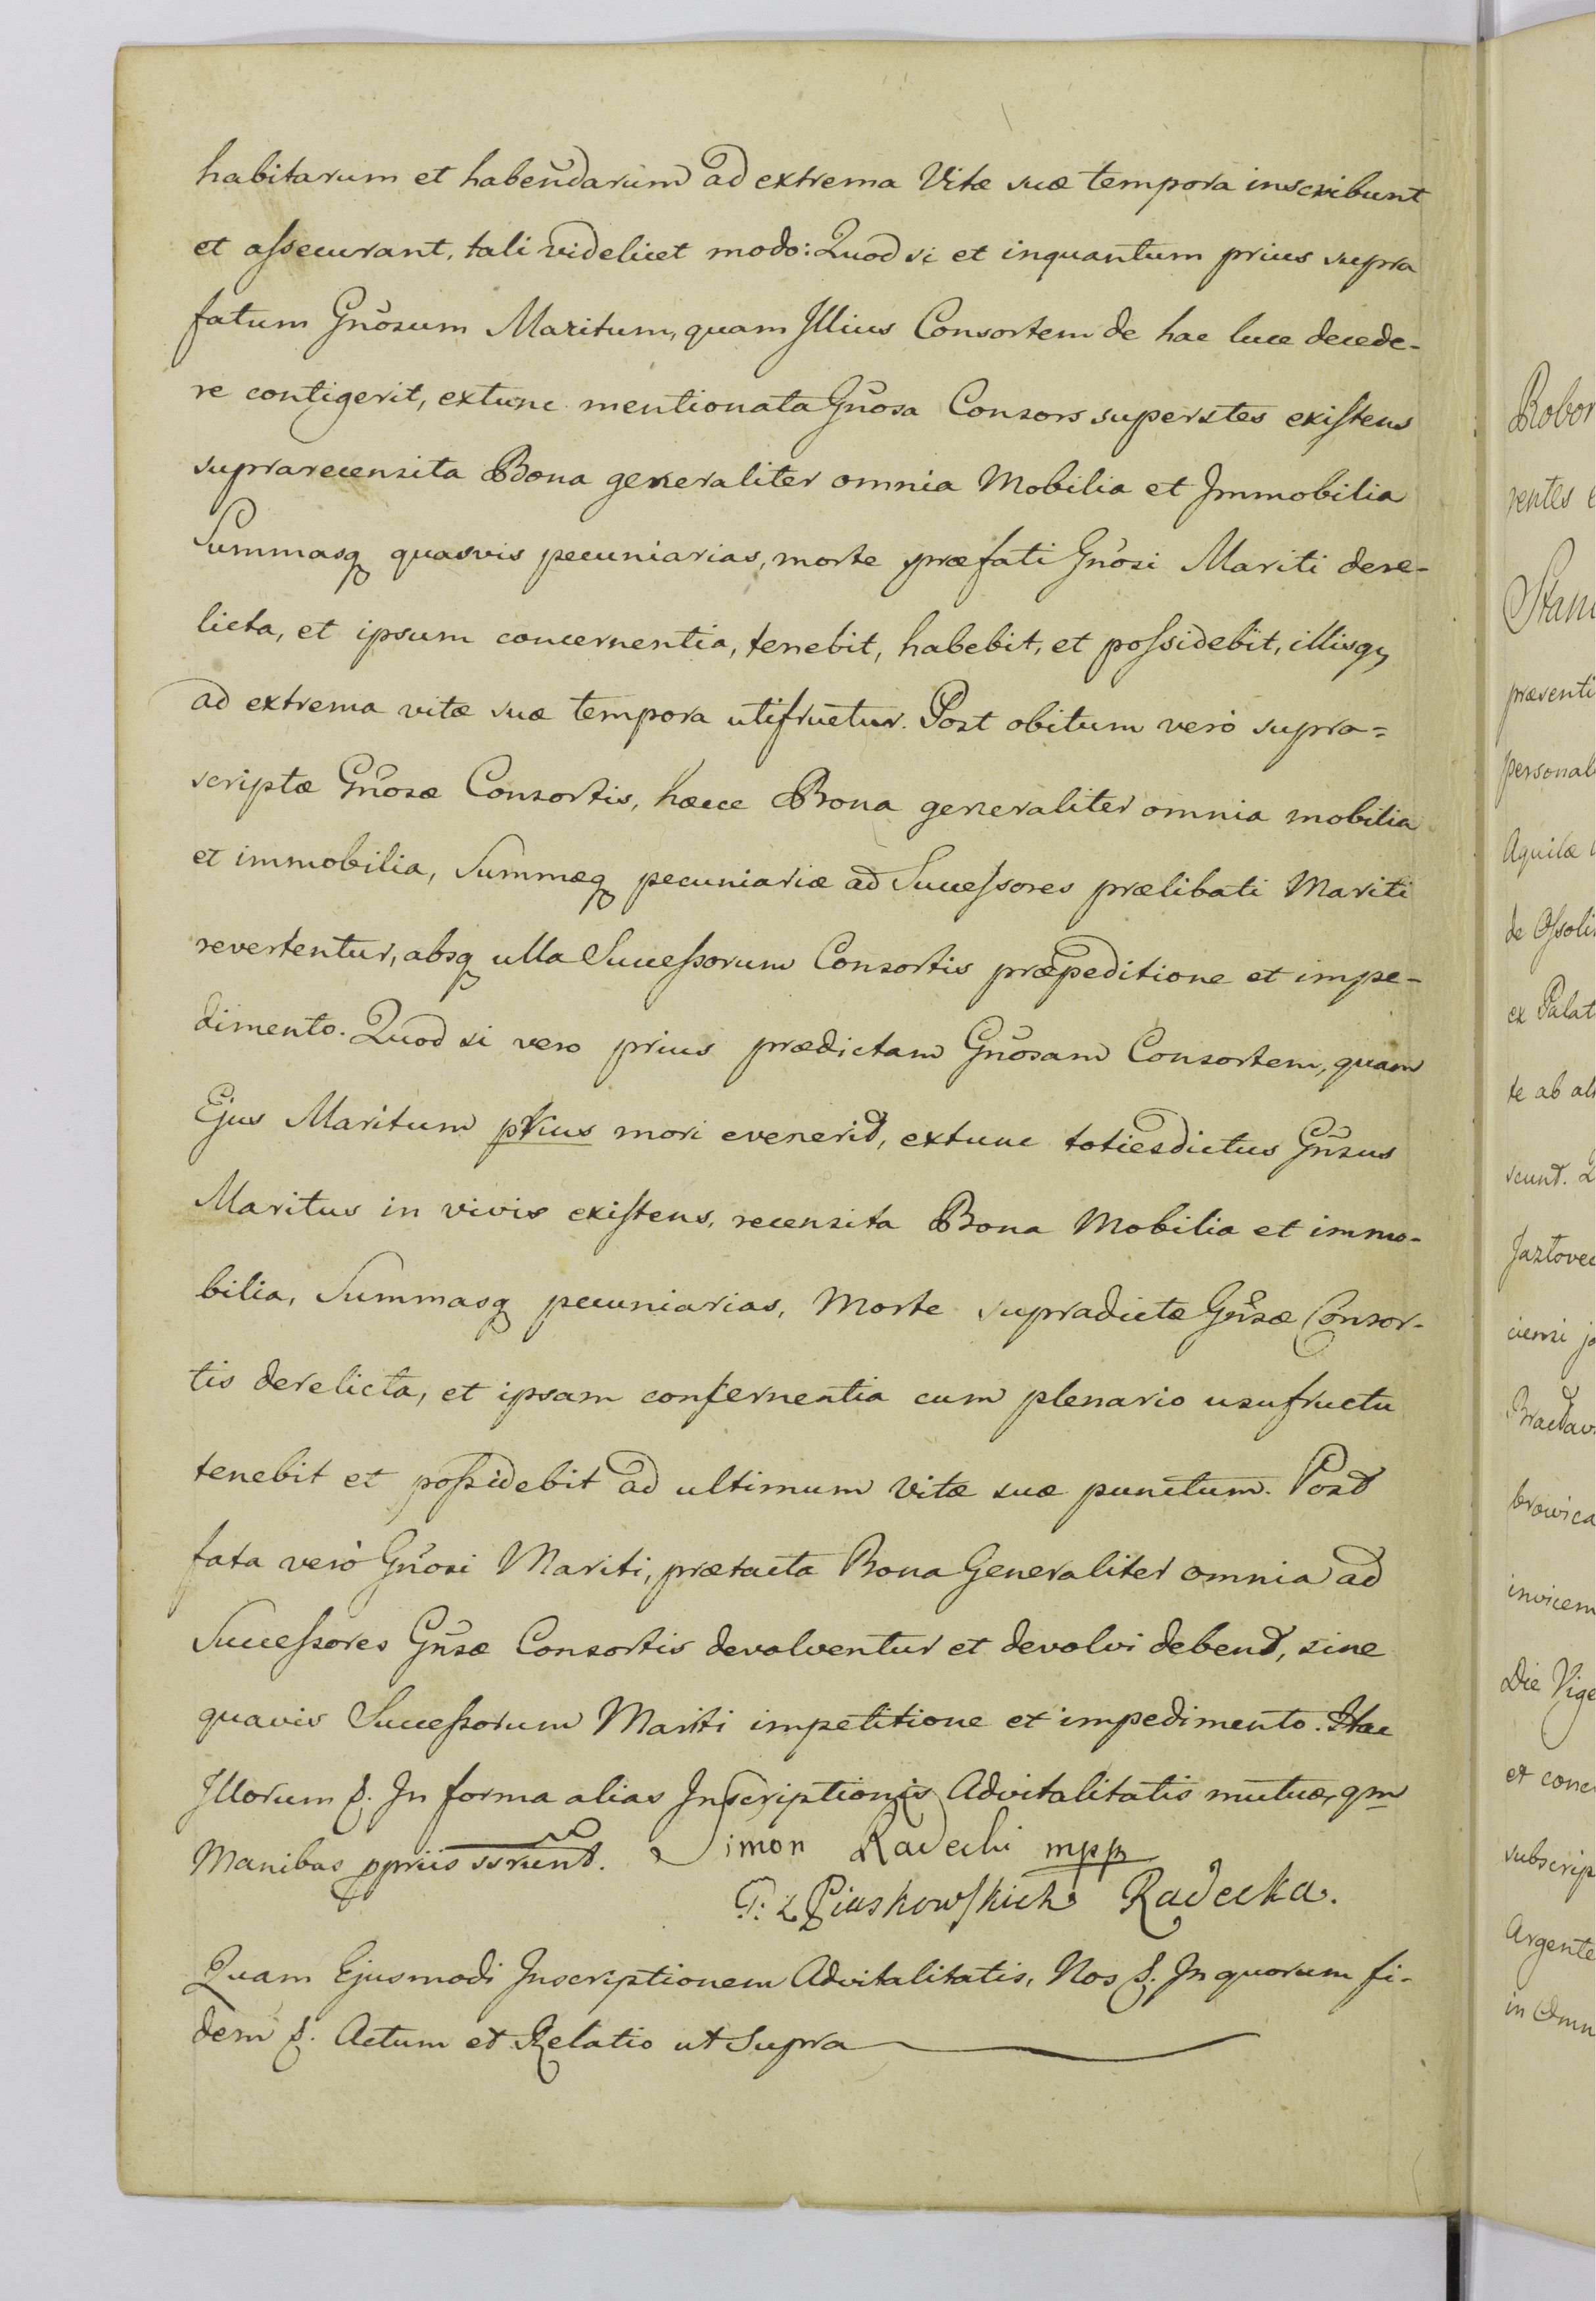 habitarum et habendarum ad extrema Vitæ suæ tempora inscribunt
et assecurant, tali videlicet modo: Quod si et inquantum prius supra
fatum Gnosum Maritum, quam Illius Consortem de hac luce decede-
re contigerit, extunc mentionata Gnosa Consors superstes existens
suprarecensita Bona generaliter omnia Mobilia et Immobilia
Summasq quasvis pecuniarias, morte præfati Gnosi Mariti dere-
licta, et ipsum concernentia, tenebit, habebit, et possidebit, illisq,
ad extrema vitæ suæ tempora utifruetur. Post obitum verò supra=
scriptæ Gnosæ Consortis, hæcce Bona generaliter omnia mobilia
et immobilia, Summæq pecuniariæ ad Successores prælibati Mariti
revertentur, absq ulla Successorum Consortis præpeditione et impe-
dimento. Quod si vero prius prædictam Gnosam Consortem, quam
Ejus Maritum prius mori evenerit, extunc totiesdictus Gnsus
Maritus in vivis existens, recensita Bona Mobilia et immo-
bilia, Summasq pecuniarias, Morte supradictæ Gnsæ Consor-
tis derelicta, et ipsam concernentia cum plenario usufructu
tenebit et possidebit ad ultimum Vitæ suæ punctum. Post
fata verò Gnosi Mariti, prætacta Bona Generaliter omnia ad
Successores Gnsæ Consortis devolventur et devolvi debent, sine
quavis Successorum Mariti impetitione et impedimento. Hac
Illorum &. In forma alias Inscriptionis Advitalitatis mutuæ, qm
Manibus ppriis ssrunt. Simon Radecki mpp
P: z Piaskowskich Radecka.
Quam Ejusmodi Inscriptionem Advitalitatis, Nos &. In quorum fi-
dem &. Actum et Relatio ut Supra
Robor
rentes
Stani
præsenti
personal
Aquilæ
de Ossoli
ex Palat
te ab al
scunt.
Jazlovec
ciensi
Braclav
browica
invicem
Die Vige
et conc
subscrip
Argente
in Omn